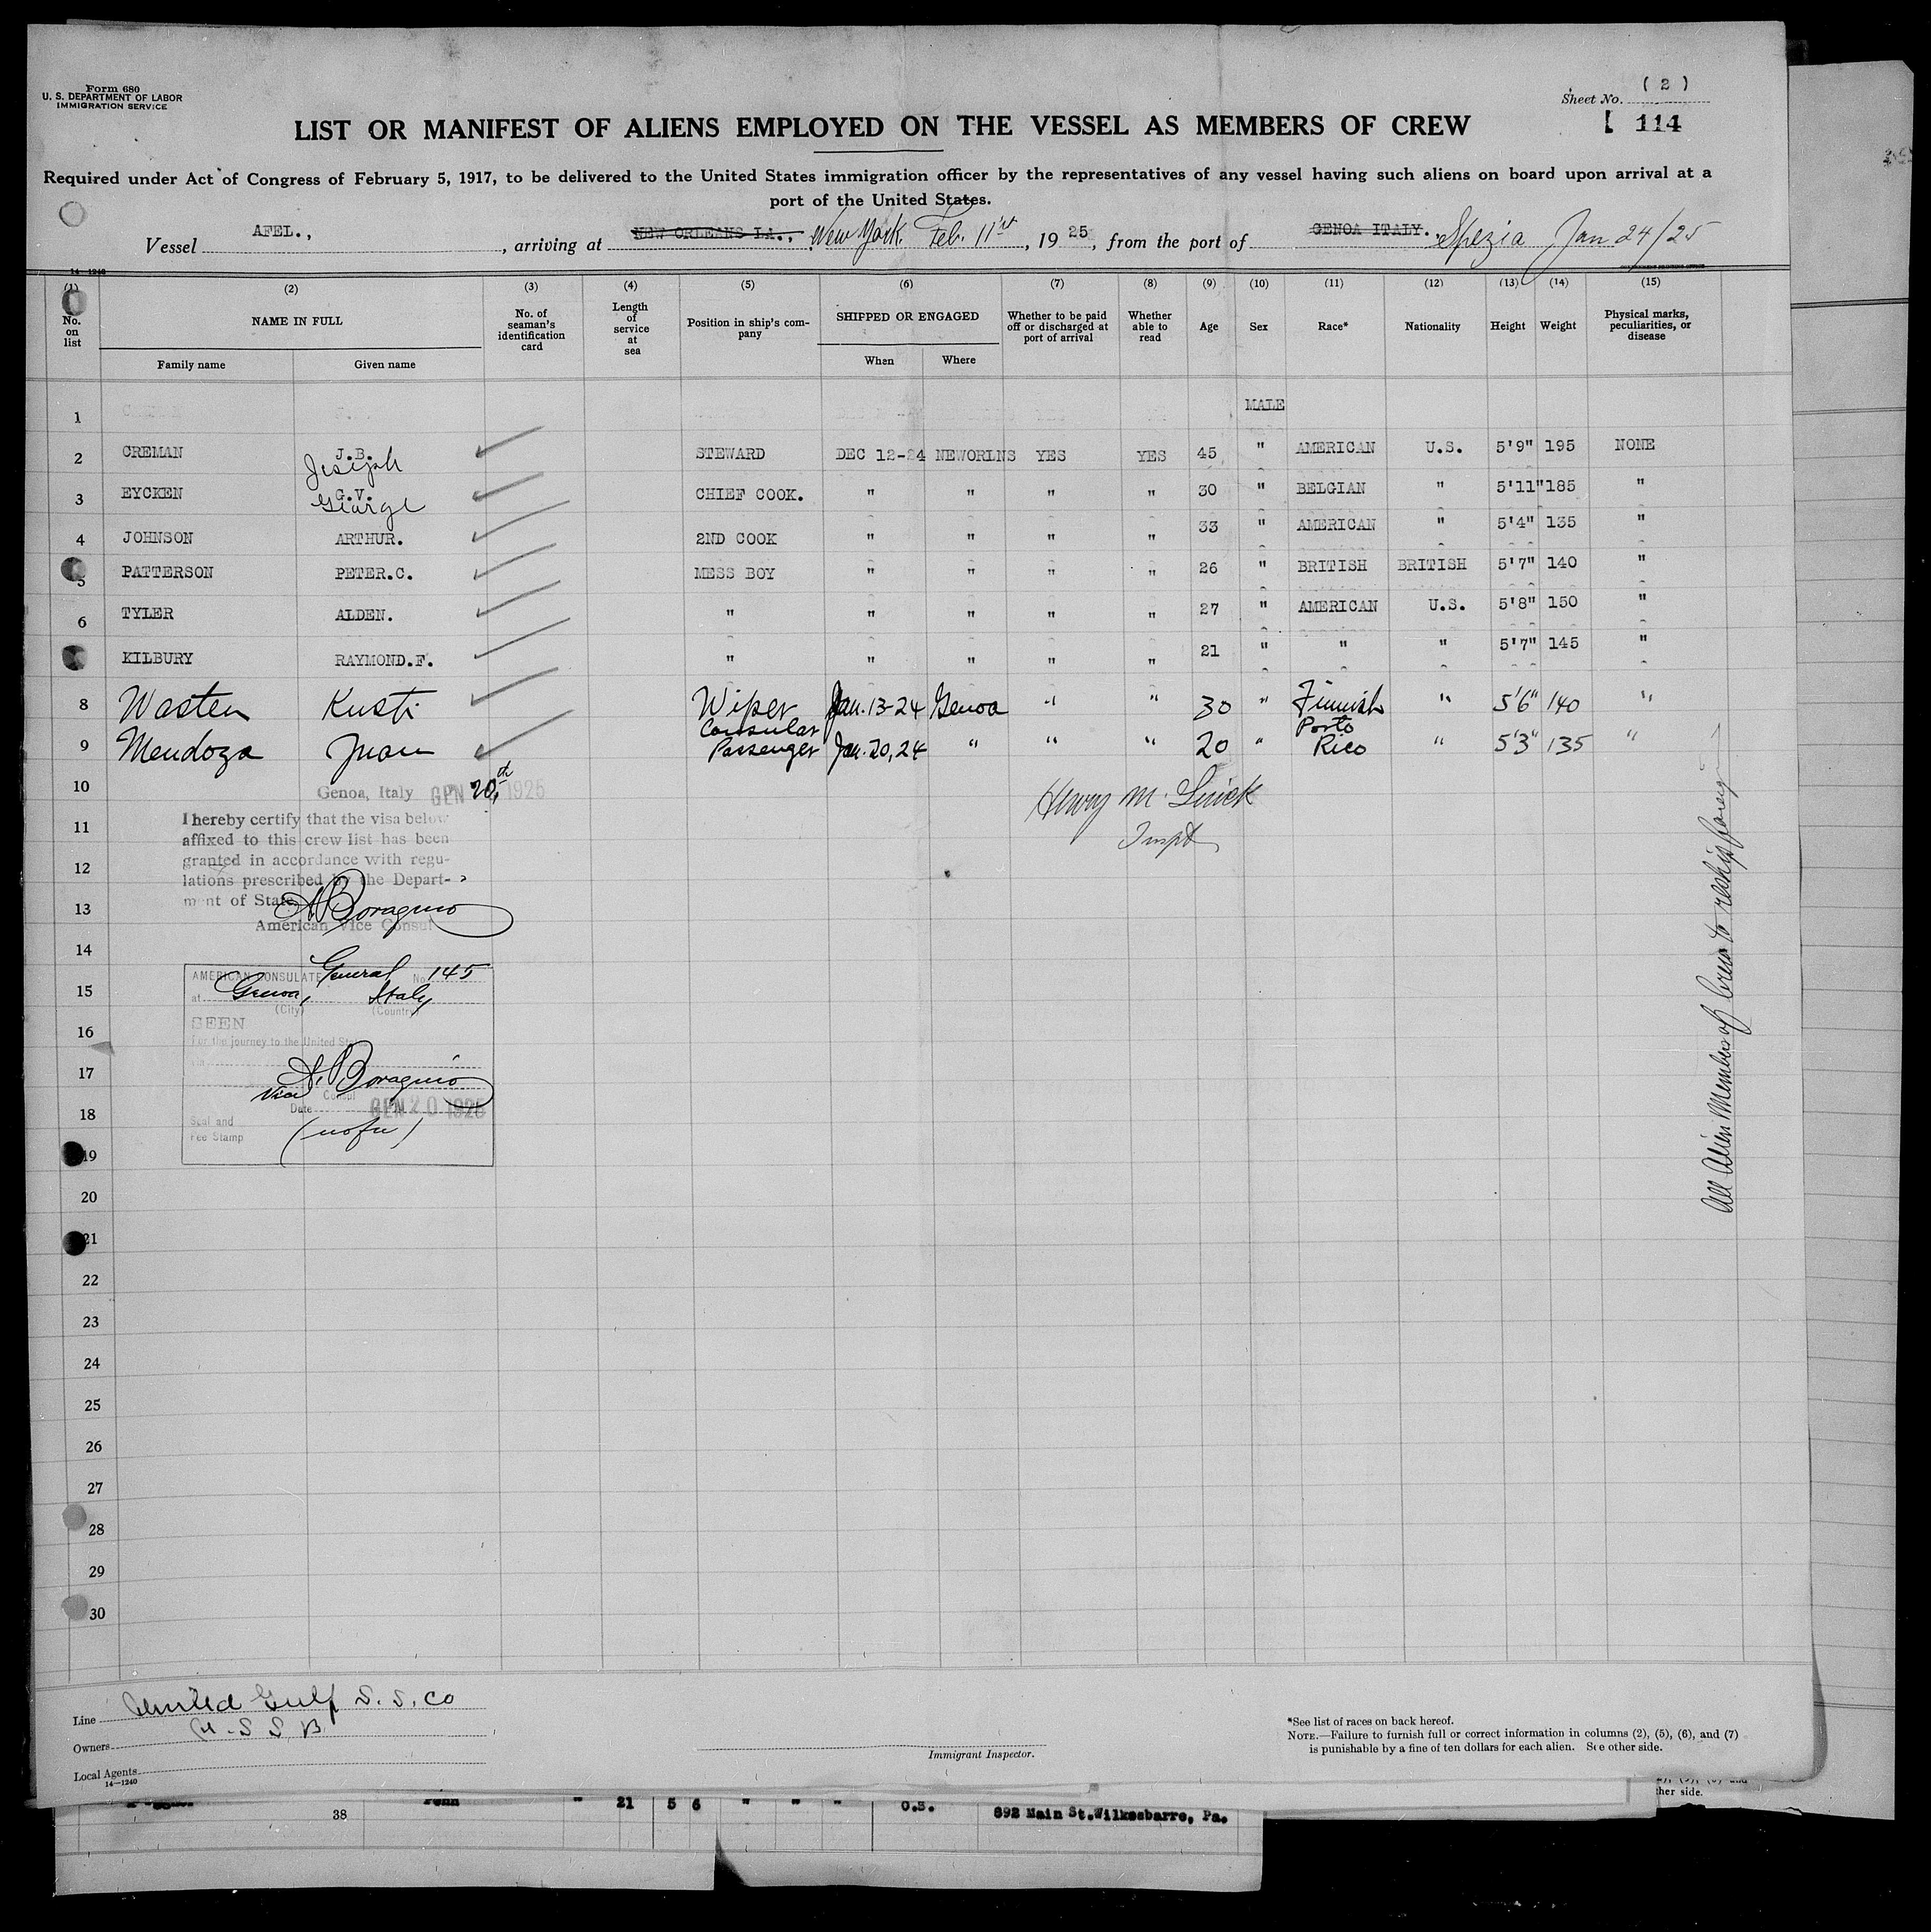 Form 680
U. S. DEPARTMENT OF LABOR
IMMIGRATION SERVICE
Sheet No. (2)
114
LIST OR MANIFEST OF ALIENS EMPLOYED ON THE VESSEL AS MEMBERS OF CREW
Required under Act of Congress of February 5, 1917, to be delivered to the United States immigration officer by the representatives of any vessel having such aliens on board upon arrival at a
port of the United States.
Vessel AFEL., , arriving at NEW ORLEANS LA., New York. Feb. 11st, 1925, from the port of GENOA ITALY. Spezia Jan 24/25
14—1240
(1) (2) (3) (4) (5) (6) (7) (8) (9) (10) (11) (12) (13) (14) (15)
No. on list NAME IN FULL No. of seaman's identification card Length of service at sea Position in ship's company SHIPPED OR ENGAGED Whether to be paid off or discharged at port of arrival Whether able to read Age Sex Race* Nationality Height Weight Physical marks, peculiarities, or disease
Family name Given name When Where
1 MALE
2 CREMAN J.B. STEWARD DEC 12-24 NEWORLNS YES YES 45 " AMERICAN U.S. 5'9" 195 NONE
3 EYCKEN G.V. George CHIEF COOK. " " " " 30 " BELGIAN " 5'11" 185 "
4 JOHNSON ARTHUR. 2ND COOK " " " " 33 " AMERICAN " 5'4" 135 "
5 PATTERSON PETER.C. MESS BOY " " " " 26 " BRITISH BRITISH 5'7" 140 "
6 TYLER ALDEN. " " " " " 27 " AMERICAN U.S. 5'8" 150 "
KILBURY RAYMOND.F. " " " " " 21 " " " 5'7" 145 "
8 Wasten Kusti Wiper Jan. 13-24 Genoa " " 30 " Finnish " 5'6" 140 "
9 Mendoza Juan Consular Passenger Jan. 20, 24 " " " 20 " Porto Rico " 5'3" 135 "
10 Genoa, Italy GEN 20th, 1925
Henry M.
Inspt
11 I hereby certify that the visa below
affixed to this crew list has been
12 granted in accordance with regu-
lations prescribed by the Depart-
13 ment of State.
A Boragino
American Vice Consul
14
AMERICAN CONSULATE General No. 145
15 at Genoa, Italy
(City) (Country)
16 SEEN
For the journey to the United States
via
17 A. Boragino
Vice Consul
18 Date GEN 20 1925
Seal and
Fee Stamp
(no fee)
19
20
21
22
23
24
25
26
27
28
29
30
All Alien Members of Crew to reship foreign
Line United Gulf S. S. Co
Owners U.S S. B
Local Agents
14—1240
Immigrant Inspector.
*See list of races on back hereof.
NOTE.—Failure to furnish full or correct information in columns (2), (5), (6), and (7)
is punishable by a fine of ten dollars for each alien. See other side.
ther side.
38 Penn " 21 5 6 " " " O.S. 892 Main St.Wilkesbarre, Pa.